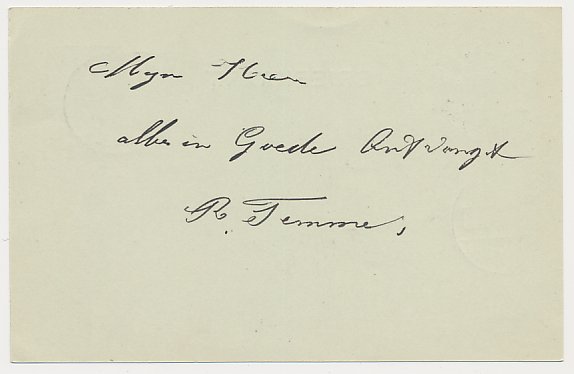 Myn Heer
alles in Goede Ontvangst
R. Temme,